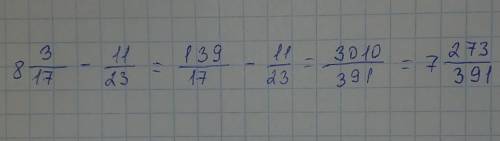 8 3/17 - 11/23 = 139/17 - 11/23 = 3010/391 = 7 273/391